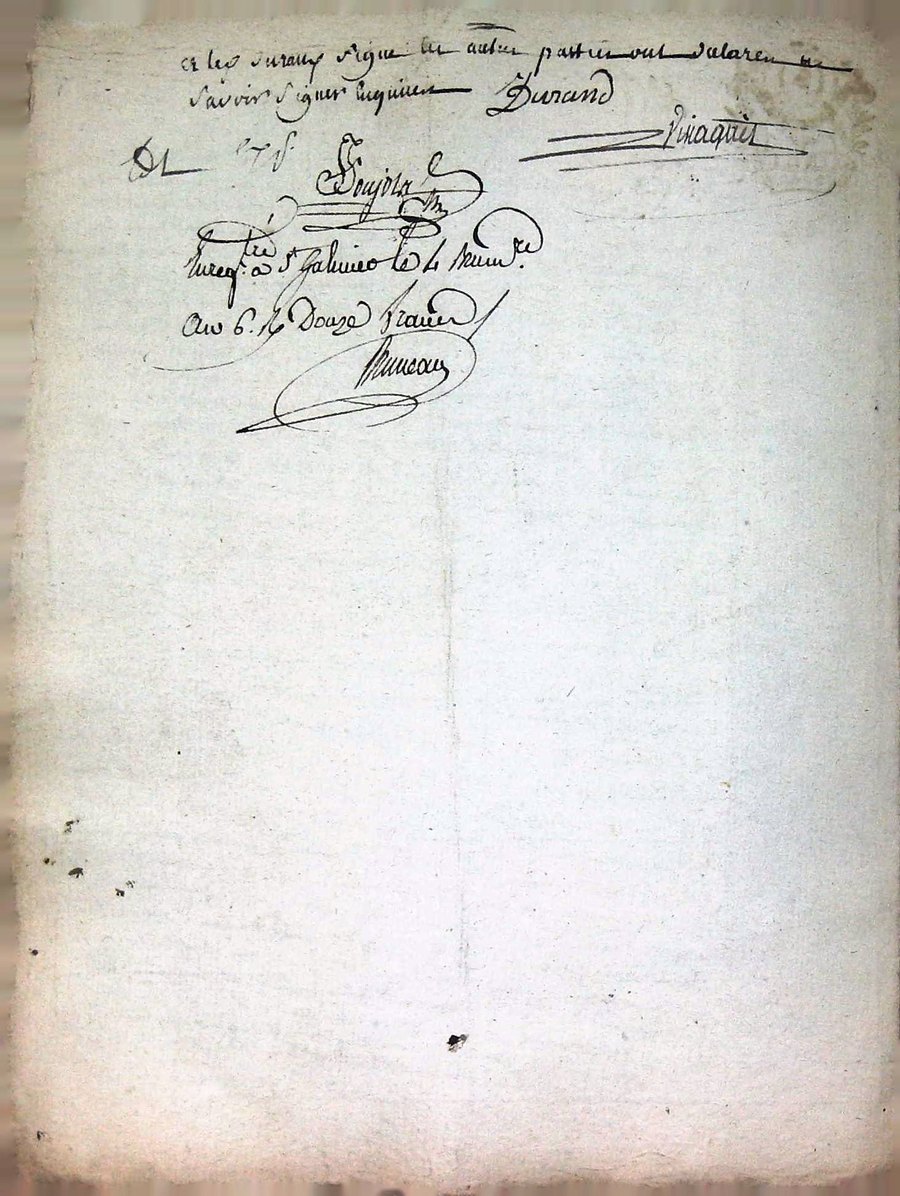 et les Duraux signé les autres parties ont déclaré ne
savoir signer enquises Durand
Pinaquet
Dt
Poujola
Enregtré à St Galmier le 4 Brumre
an 6. R Douze francs
Bruneau